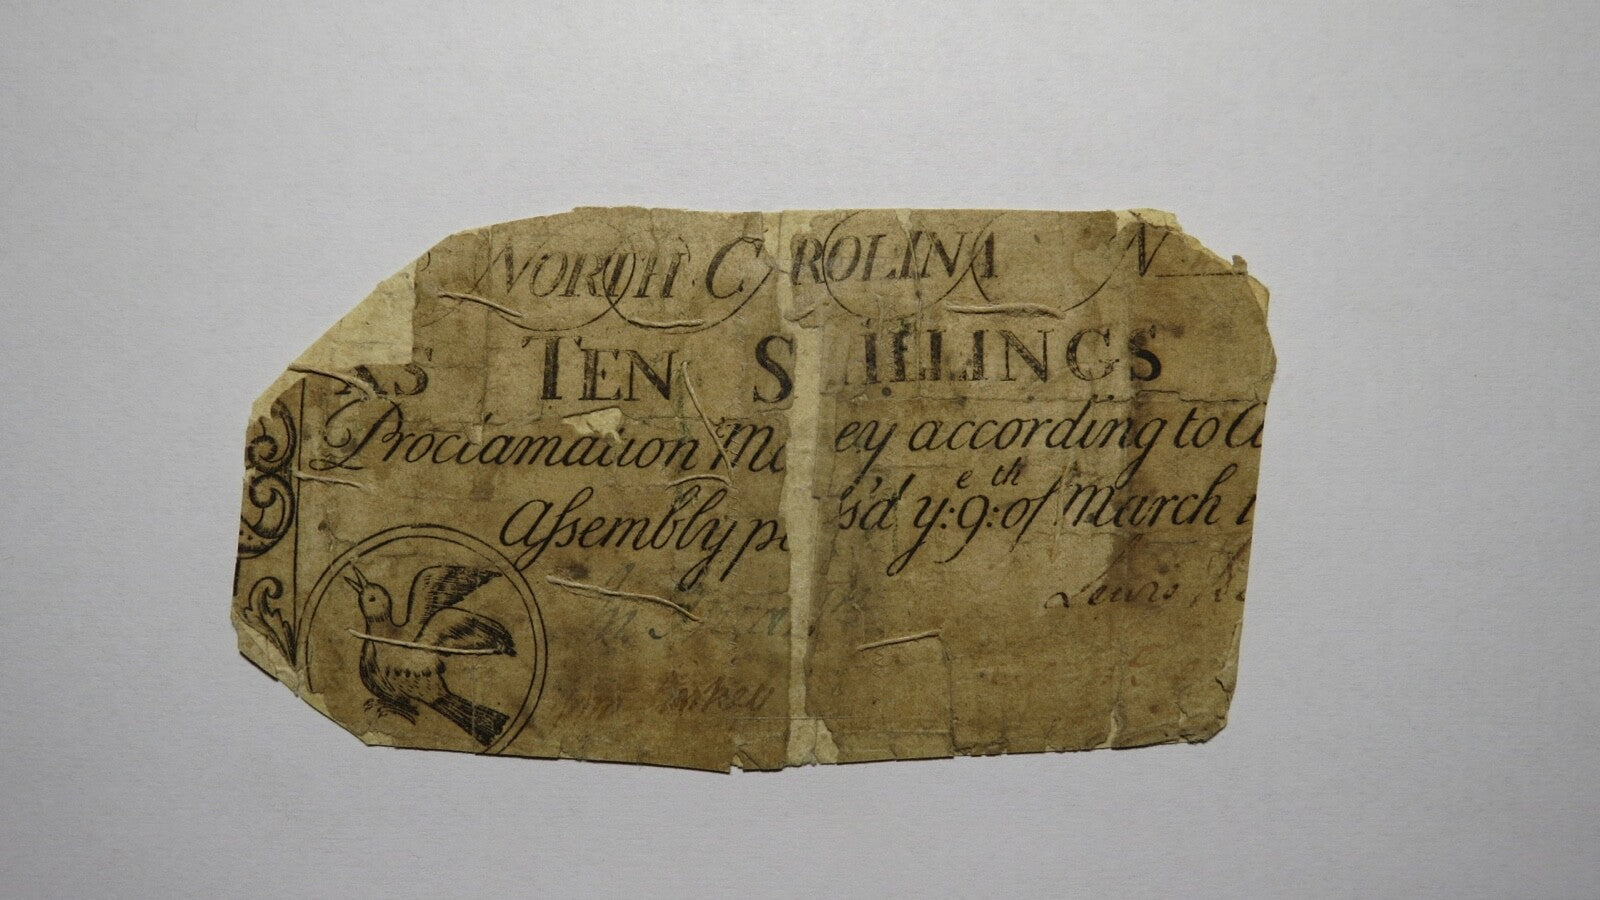 NORTH CAROLINA N
AS TEN SHILLINGS
Proclamation Mo ey according to A
Aſsembly p sʼd y:ᵉ9:ᵗʰof March 1
Lewis